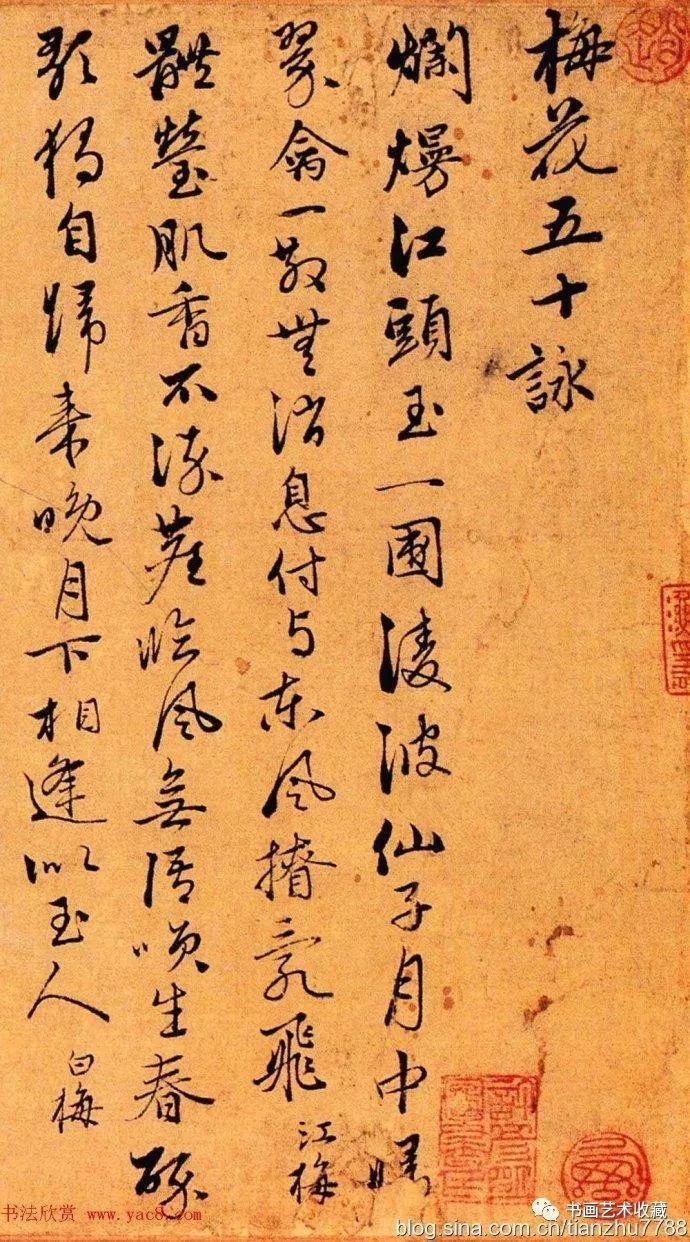 梅花五十詠
爛熳江頭玉一圍淩波仙子月中歸
翠禽一散無消息付与東風撩亂飛 江梅
體瑩肌香不染塵臨風無語生春醉
歌獨自歸来晚月下相逢似玉人 白梅
书法欣赏 www.yac8.com
书画艺术收藏
blog.sina.com.cn/tianzhu7788